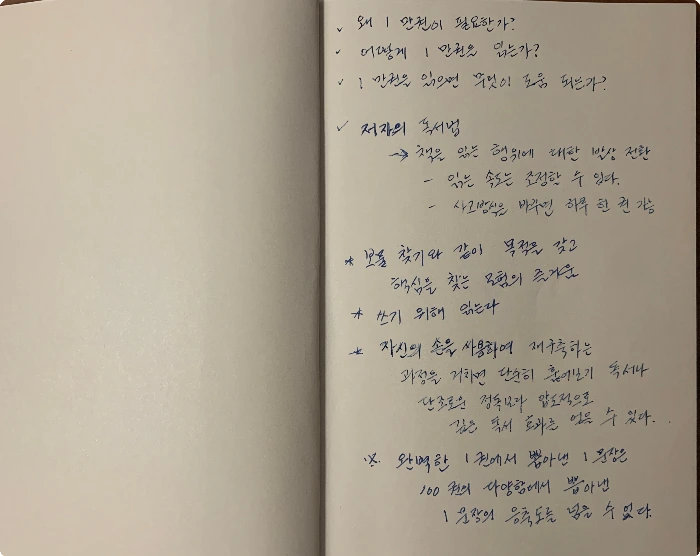 ✓ 왜 1만권이 필요한가?
✓ 어떻게 1만권을 읽는가?
✓ 1만권을 읽으면 무엇이 도움 되는가?
✓ 저자의 독서법
→ 책을 읽는 행위에 대한 발상 전환
- 읽는 속도는 조정할 수 있다.
- 사고방식을 바꾸면 하루 한 권 가능
* 보물 찾기와 같이 목적을 갖고
핵심을 찾는 모험의 즐거움
* 쓰기 위해 읽는다
* 자신의 손을 사용하여 재구축하는
과정을 거치면 단순히 훑어보기 독서나
단조로운 정독보다 압도적으로
깊은 독서 효과를 얻을 수 있다.
※ 완벽한 1권에서 뽑아낸 1문장은
100권의 다양함에서 뽑아낸
1문장의 응축도를 넘을 수 없다.